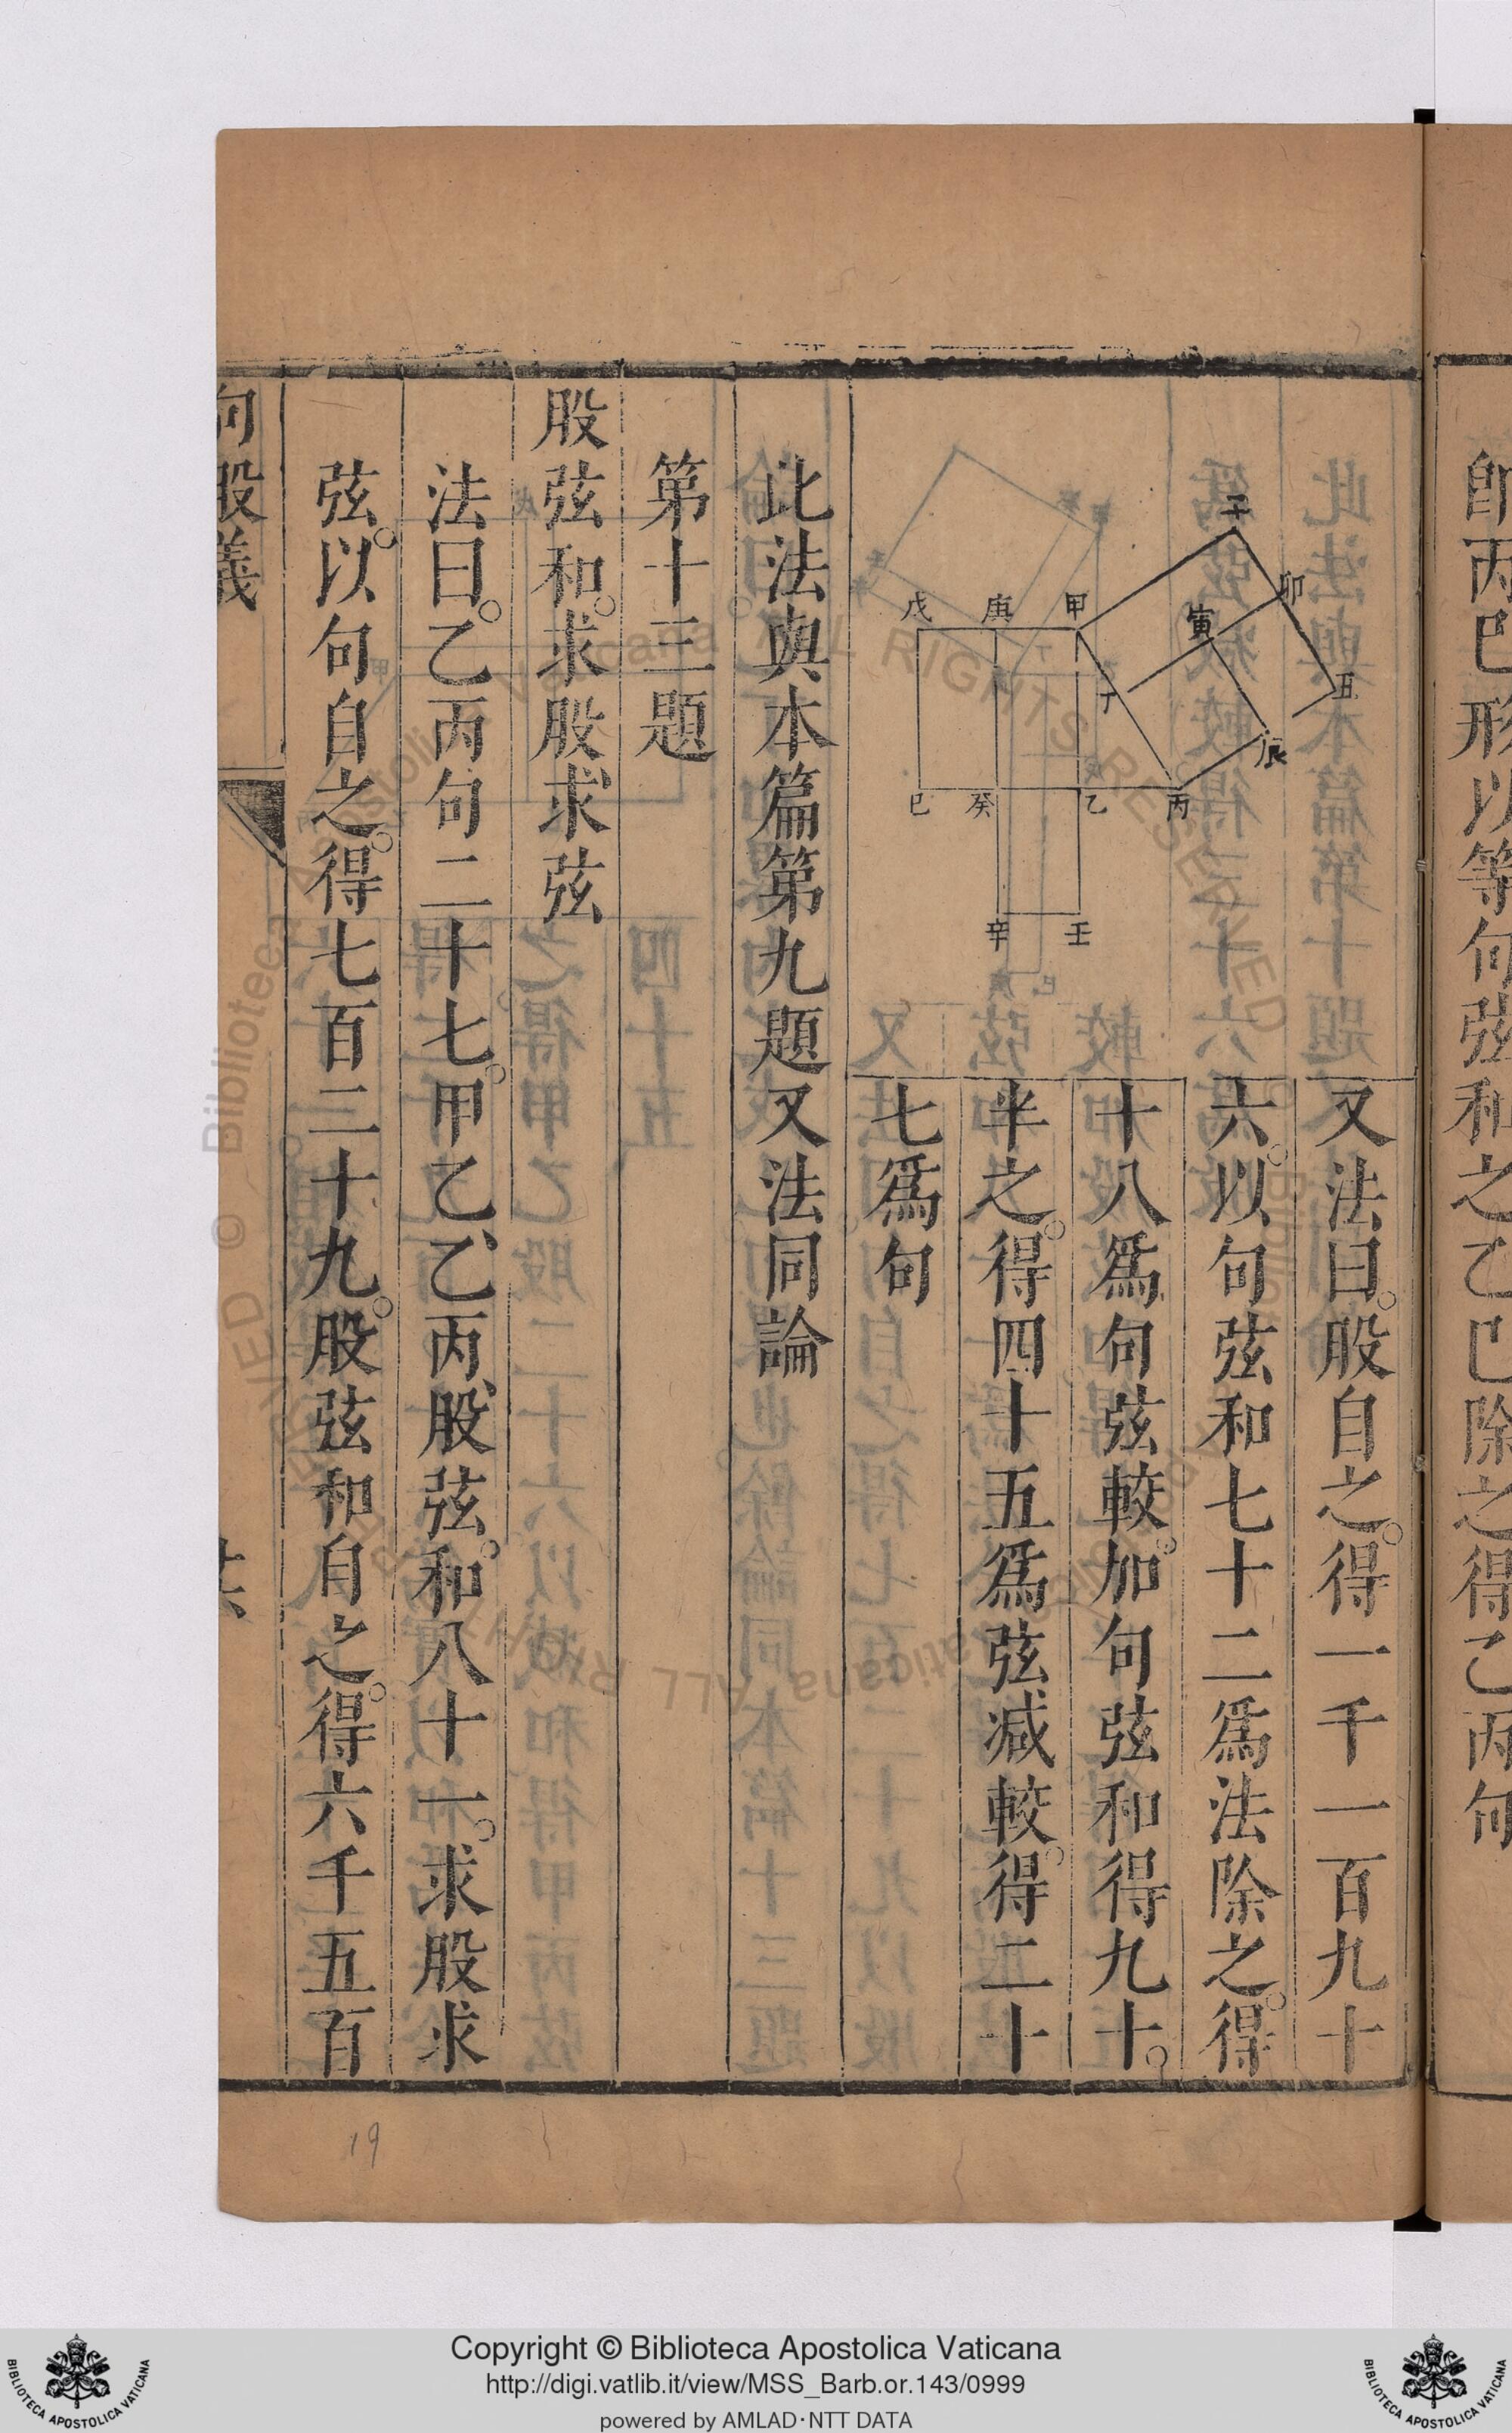 卽丙巳形以等句弦和之乙巳除之得乙丙句
又法曰股自之得一千一百九十
六以句弦和七十二爲法除之得
十八爲句弦較加句弦和得九十
半之得四十五爲弦减較得二十
七爲句
子
卯
寅
丑
辰
甲
庚
戊
丁
丙
乙
癸
巳
壬
辛
此法與本篇第九題又法同論
第十三題
股弦和求股求弦
法曰乙丙句二十七甲乙乙丙股弦和八十一求股求
弦以句自之得七百二十九股弦和自之得六千五百
句股義
Copyright © Biblioteca Apostolica Vaticana
http://digi.vatlib.it/view/MSS_Barb.or.143/0999
powered by AMLAD·NTT DATA
BIBLIOTECA APOSTOLICA VATICANA
BIBLIOTECA APOSTOLICA VATICANA
19